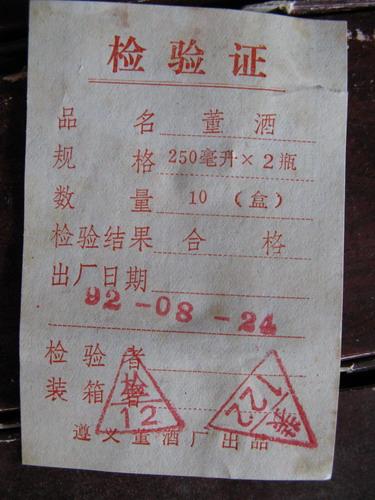 检验证
品名 董酒
规格 250毫升×2瓶
数量 10（盒）
检验结果 合格
出厂日期
92-08-24
检验者
装箱者
12
122
遵义董酒厂出品